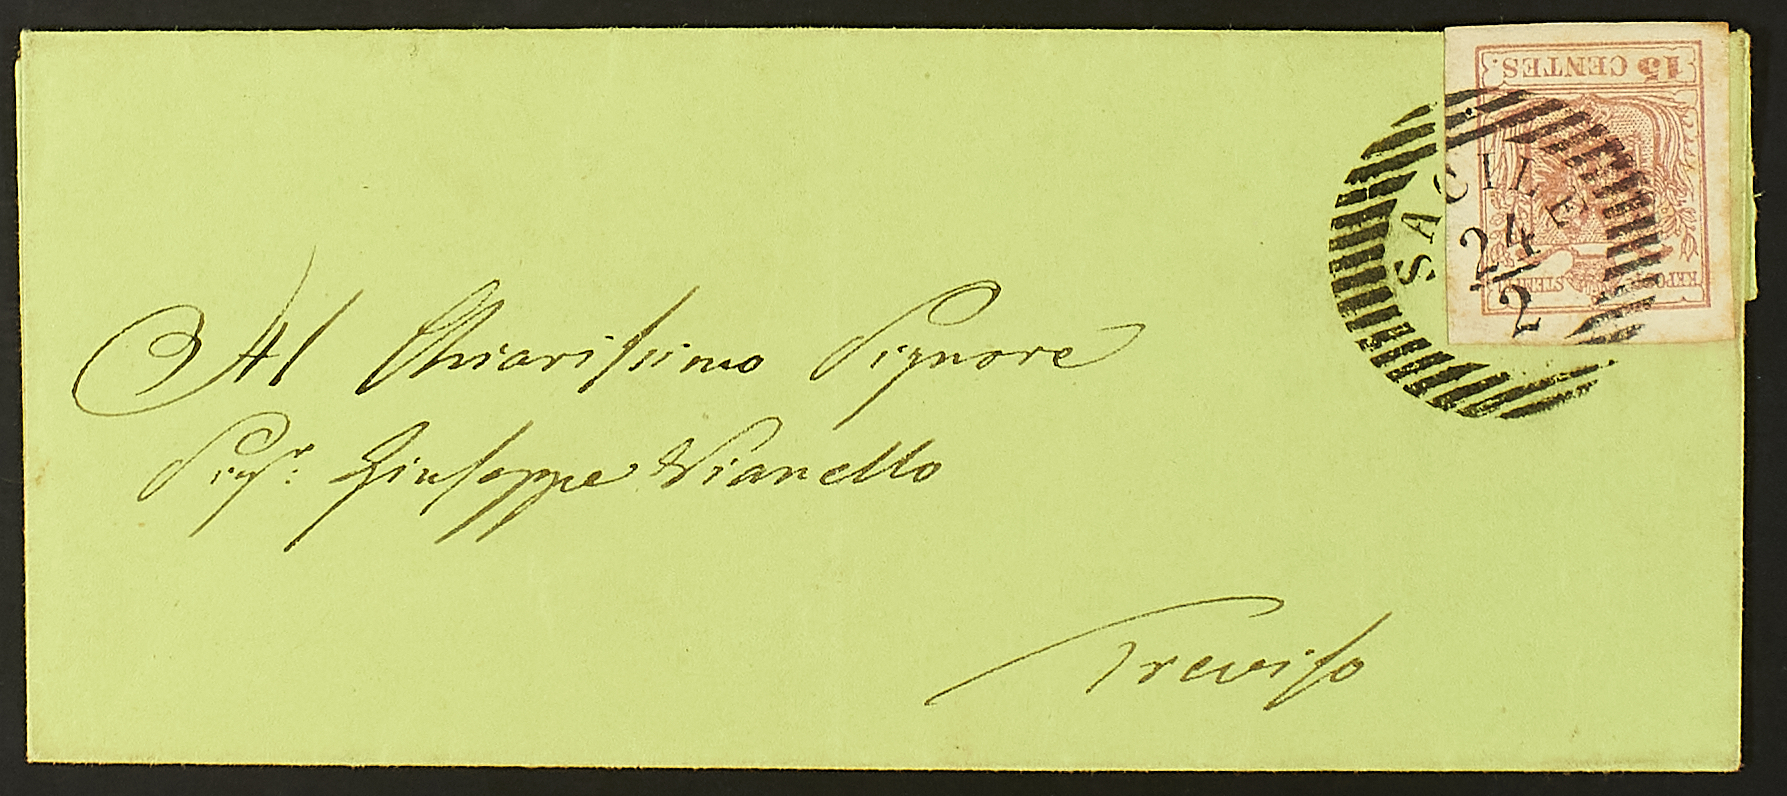 15 CENTES.
SACILE
24
2
STEM
Al Chiarissimo Signore
Sigr. Giuseppe Vianello
Treviso